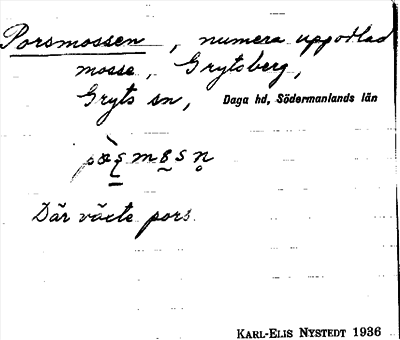 Porsmossen, numera uppodlad
mosse, Grytsberg,
Gryts sn, Daga hd, Södermanlands län
Där växte pors.
KARL-ELIS NYSTEDT 1936